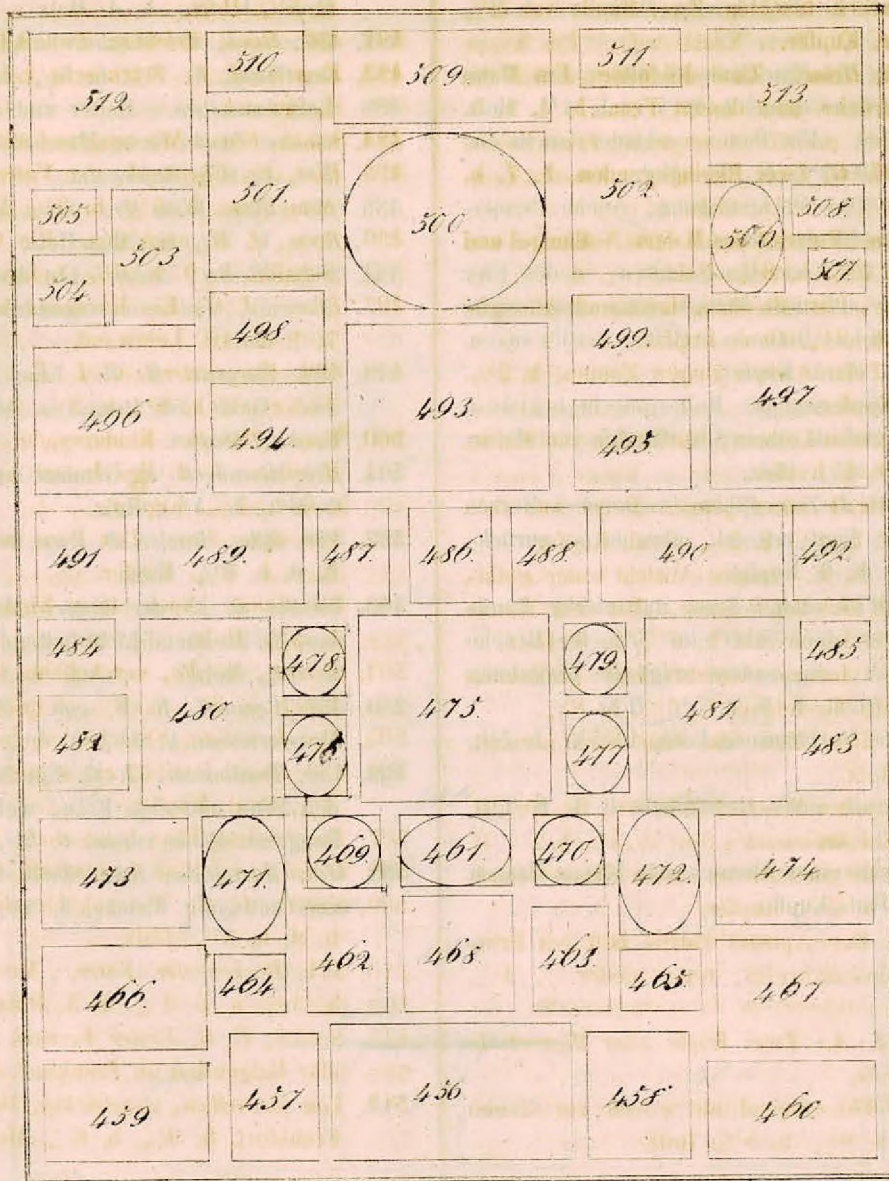 512. 510. 509. 511. 513.
505. 503. 501. 500. 502. 506. 508.
504. 507.
498. 499.
496. 494. 493. 495. 497
491 489. 487. 486. 488. 490. 492.
484 478. 479. 485.
480. 475. 481.
482 476. 477. 483.
473 471. 469. 461. 470. 472. 474
466. 464. 462. 468. 463. 465. 467
459 457. 456. 458 460.